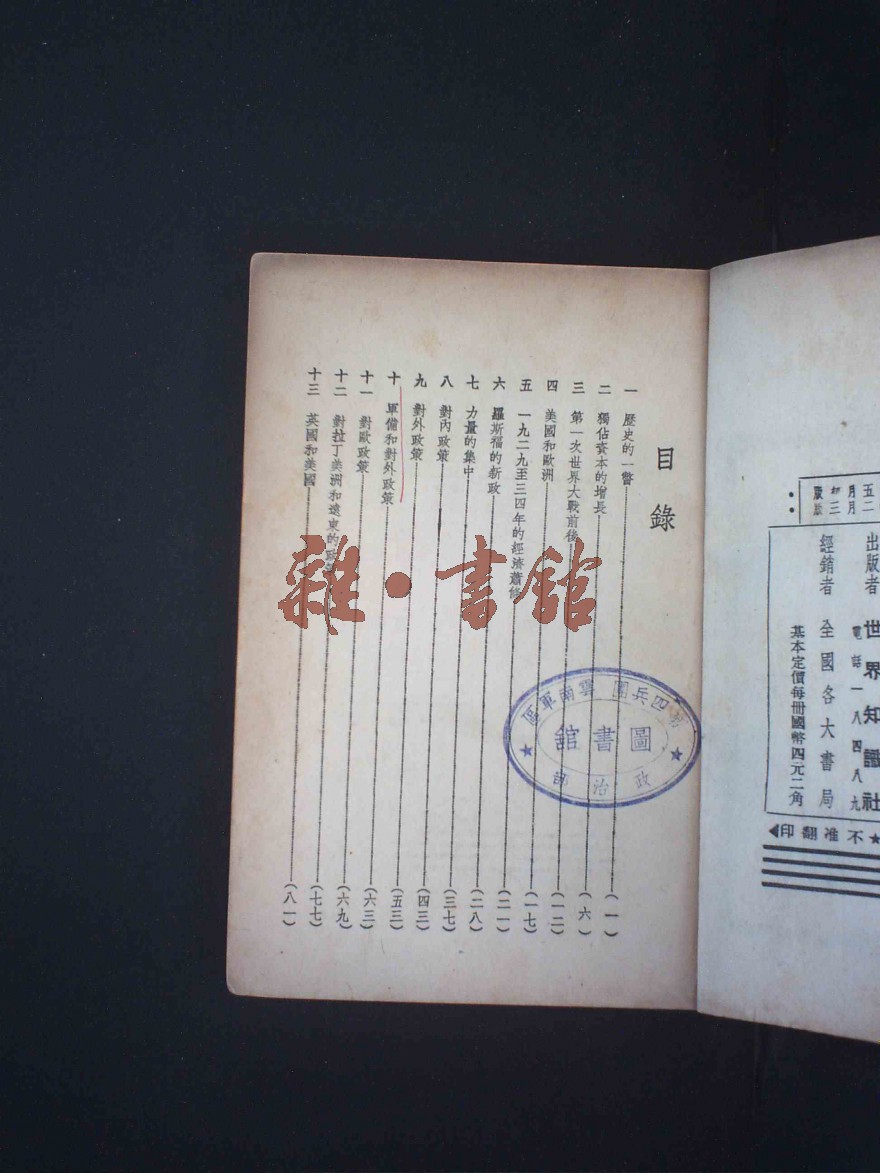 五月初版
二月三版
出版者 世界知識社
電話一八四八九
經銷者 全國各大書局
基本定價每冊國幣四元二角
★不准翻印
目錄
一 歷史的一瞥(一)
二 獨佔資本的增長(六)
三 第一次世界大戰前後(一二)
四 美國和歐洲(一七)
五 一九二九至三四年的經濟蕭條(二一)
六 羅斯福的新政(二八)
七 力量的集中(三七)
八 對內政策(四三)
九 對外政策(五三)
十 軍備和對外政策(六三)
十一 對歐政策(六九)
十二 對拉丁美洲和遠東的政策(七七)
十三 英國和美國(八一)
第四兵團 雲南軍區
圖書館
政治部
雜·書館